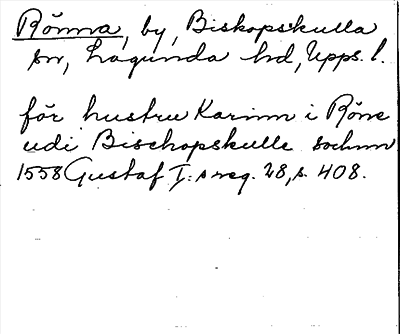 Rönna, by, Biskopskulla
sn, Lagunda hd, Upps. l.
för hustru Karinn i Röne
udi Bischopskulle sochnn
1558 Gustaf I:s reg. 28, s. 408.